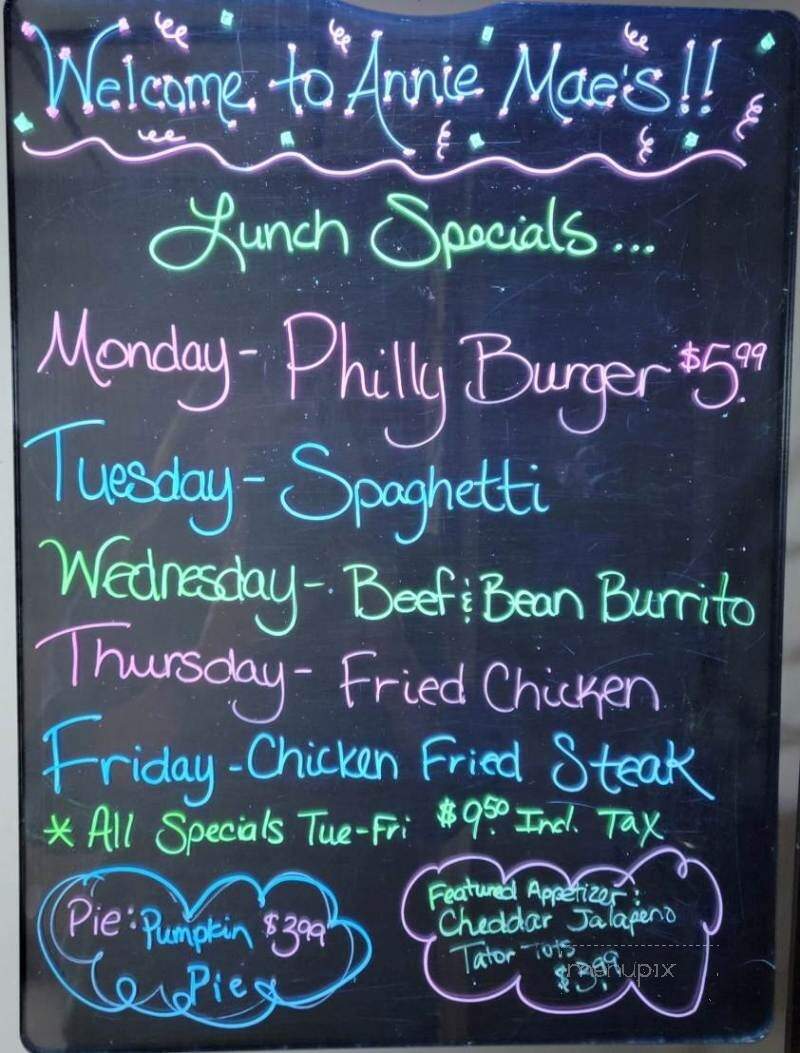 Welcome to Annie Mae's!!
Lunch Specials...
Monday - Philly Burger $5.99
Tuesday - Spaghetti
Wednesday - Beef & Bean Burrito
Thursday - Fried Chicken
Friday - Chicken Fried Steak
* All Specials Tue-Fri $9.50 Incl. Tax
Pie: Pumpkin $3.99
Pie
Featured Appetizer:
Cheddar Jalapeno
Tator Tots
$3.99
menupix